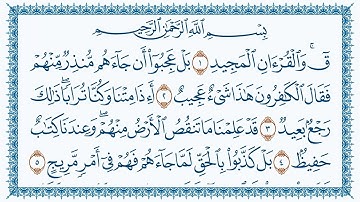 بِسْمِ اللَّهِ الرَّحْمَٰنِ الرَّحِيمِ
قٓ ۚ وَالْقُرْءَانِ الْمَجِيدِ ۝١ بَلْ عَجِبُوٓا۟ أَن جَآءَهُم مُّنذِرٌ مِّنْهُمْ
فَقَالَ الْكَٰفِرُونَ هَٰذَا شَىْءٌ عَجِيبٌ ۝٢ أَءِذَا مِتْنَا وَكُنَّا تُرَابًا ۖ ذَٰلِكَ
رَجْعٌۢ بَعِيدٌ ۝٣ قَدْ عَلِمْنَا مَا تَنقُصُ الْأَرْضُ مِنْهُمْ ۖ وَعِندَنَا كِتَٰبٌ
حَفِيظٌۢ ۝٤ بَلْ كَذَّبُوا۟ بِالْحَقِّ لَمَّا جَآءَهُمْ فَهُمْ فِىٓ أَمْرٍ مَّرِيجٍ ۝٥